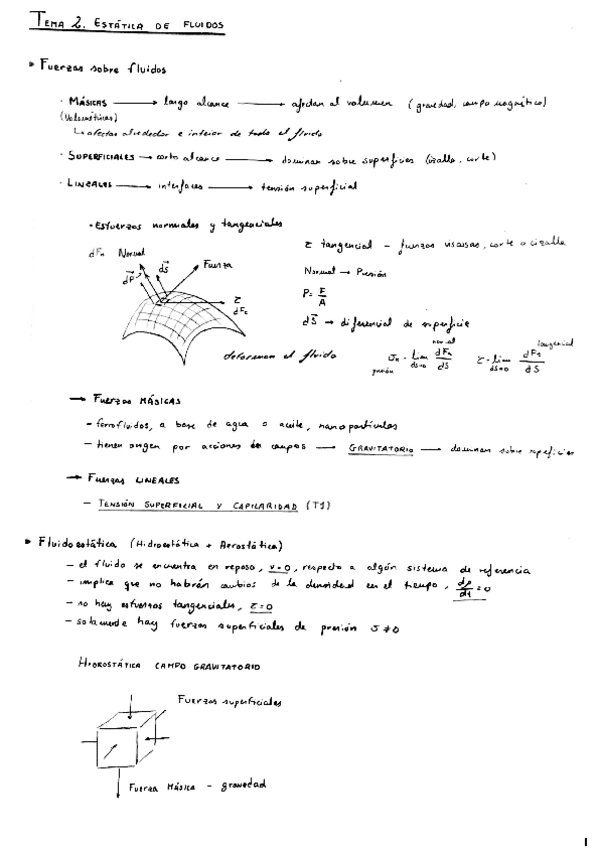 TEMA 2. ESTÁTICA DE FLUIDOS
▸ Fuerzas sobre fluidos
· MÁSICAS → largo alcance → afectan al volumen (gravedad, campo magnético)
(Volumétricas)
↳ afectan alrededor e interior de todo el fluido
· SUPERFICIALES → corto alcance → dominan sobre superficies (cizalla, corte)
· LINEALES → interfaces → tensión superficial
· Esfuerzos normales y tangenciales
τ tangencial - fuerzas viscosas, corte o cizalla
dFn Normal
dP dS Fuerza
τ
dFt
Normal → Presión
P = F/A
dS → diferencial de superficie
deforman el fluido
normal
σn = lim dFn/dS
ds→0
presión
tangencial
τ = lim dFt/dS
ds→0
→ Fuerzas MÁSICAS
- ferrofluidos, a base de agua o aceite, nanopartículas
- tienen origen por acciones de campos → GRAVITATORIO → dominan sobre superficies
→ Fuerzas LINEALES
- TENSIÓN SUPERFICIAL Y CAPILARIDAD (T1)
▸ Fluidoestática (Hidroestática + Aerostática)
- el fluido se encuentra en reposo, v=0, respecto a algún sistema de referencia
- implica que no habrán cambios de la densidad en el tiempo, dρ/dt = 0
- no hay esfuerzos tangenciales, τ=0
- solamente hay fuerzas superficiales de presión
HIDROSTÁTICA CAMPO GRAVITATORIO
Fuerzas superficiales
Fuerza MÁSICA - gravedad
1